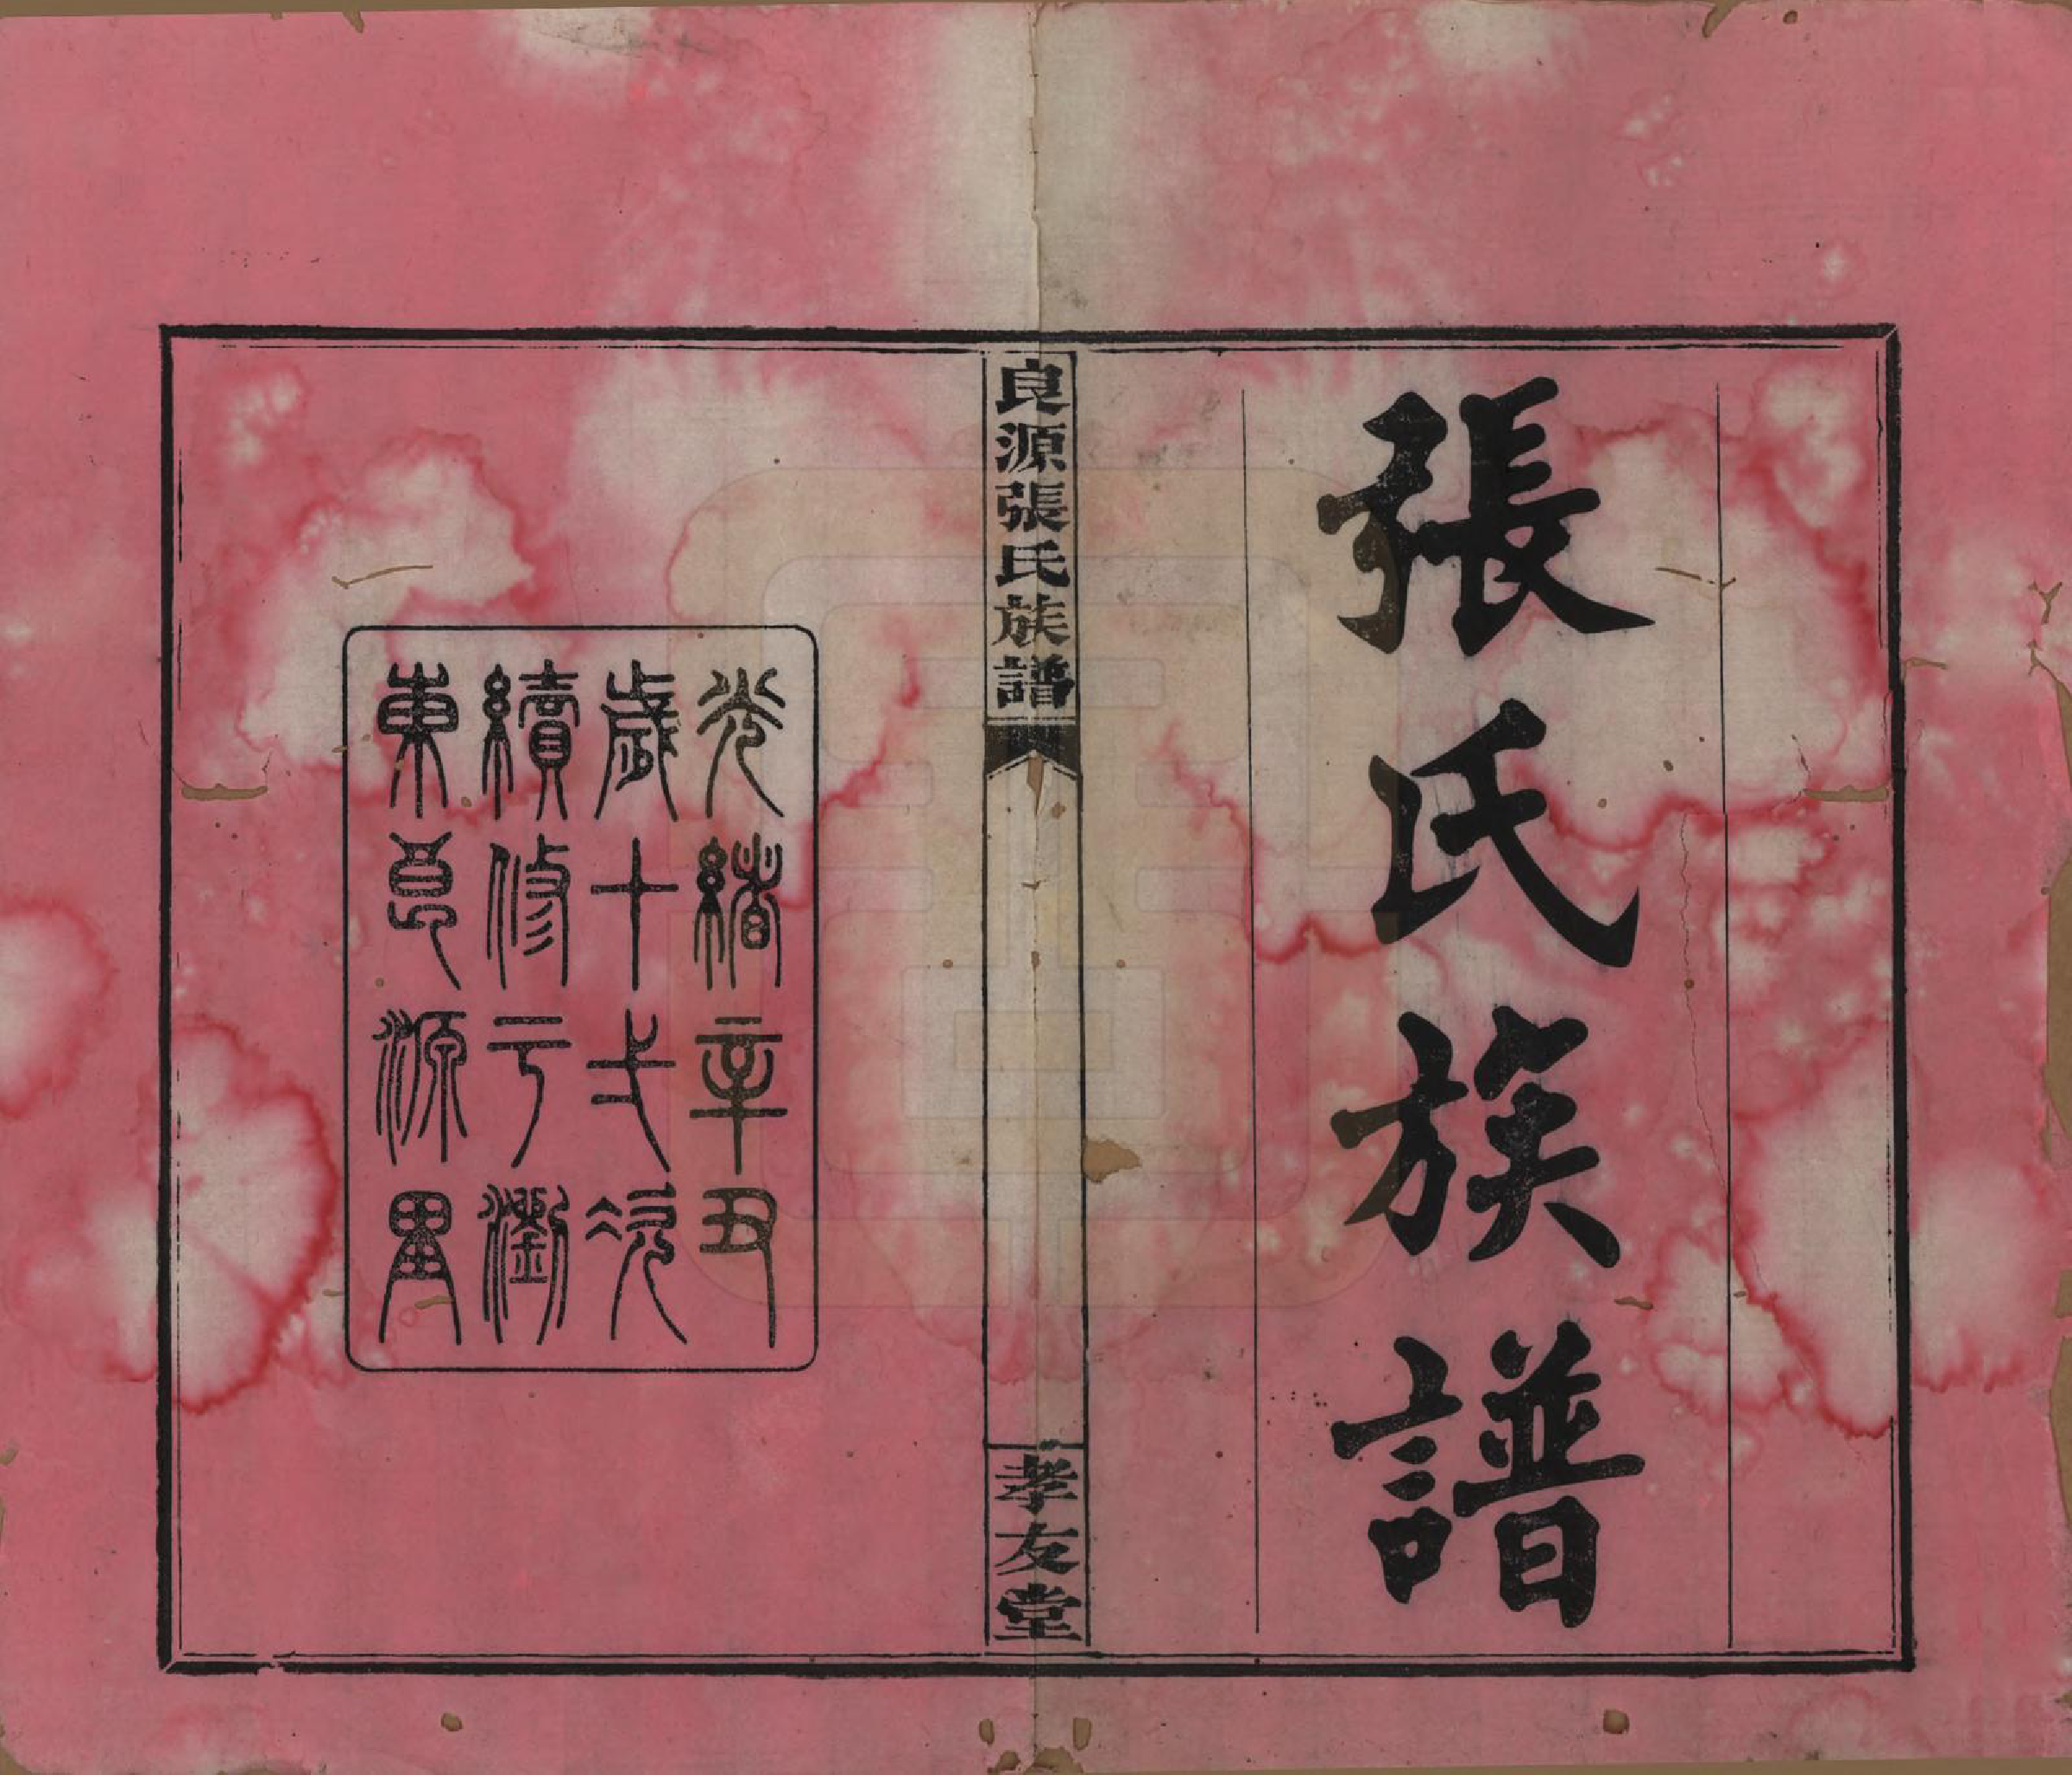 張氏族譜
良源張氏族譜
孝友堂
光緒辛丑
歲十弍次
續修于瀏
東良源里